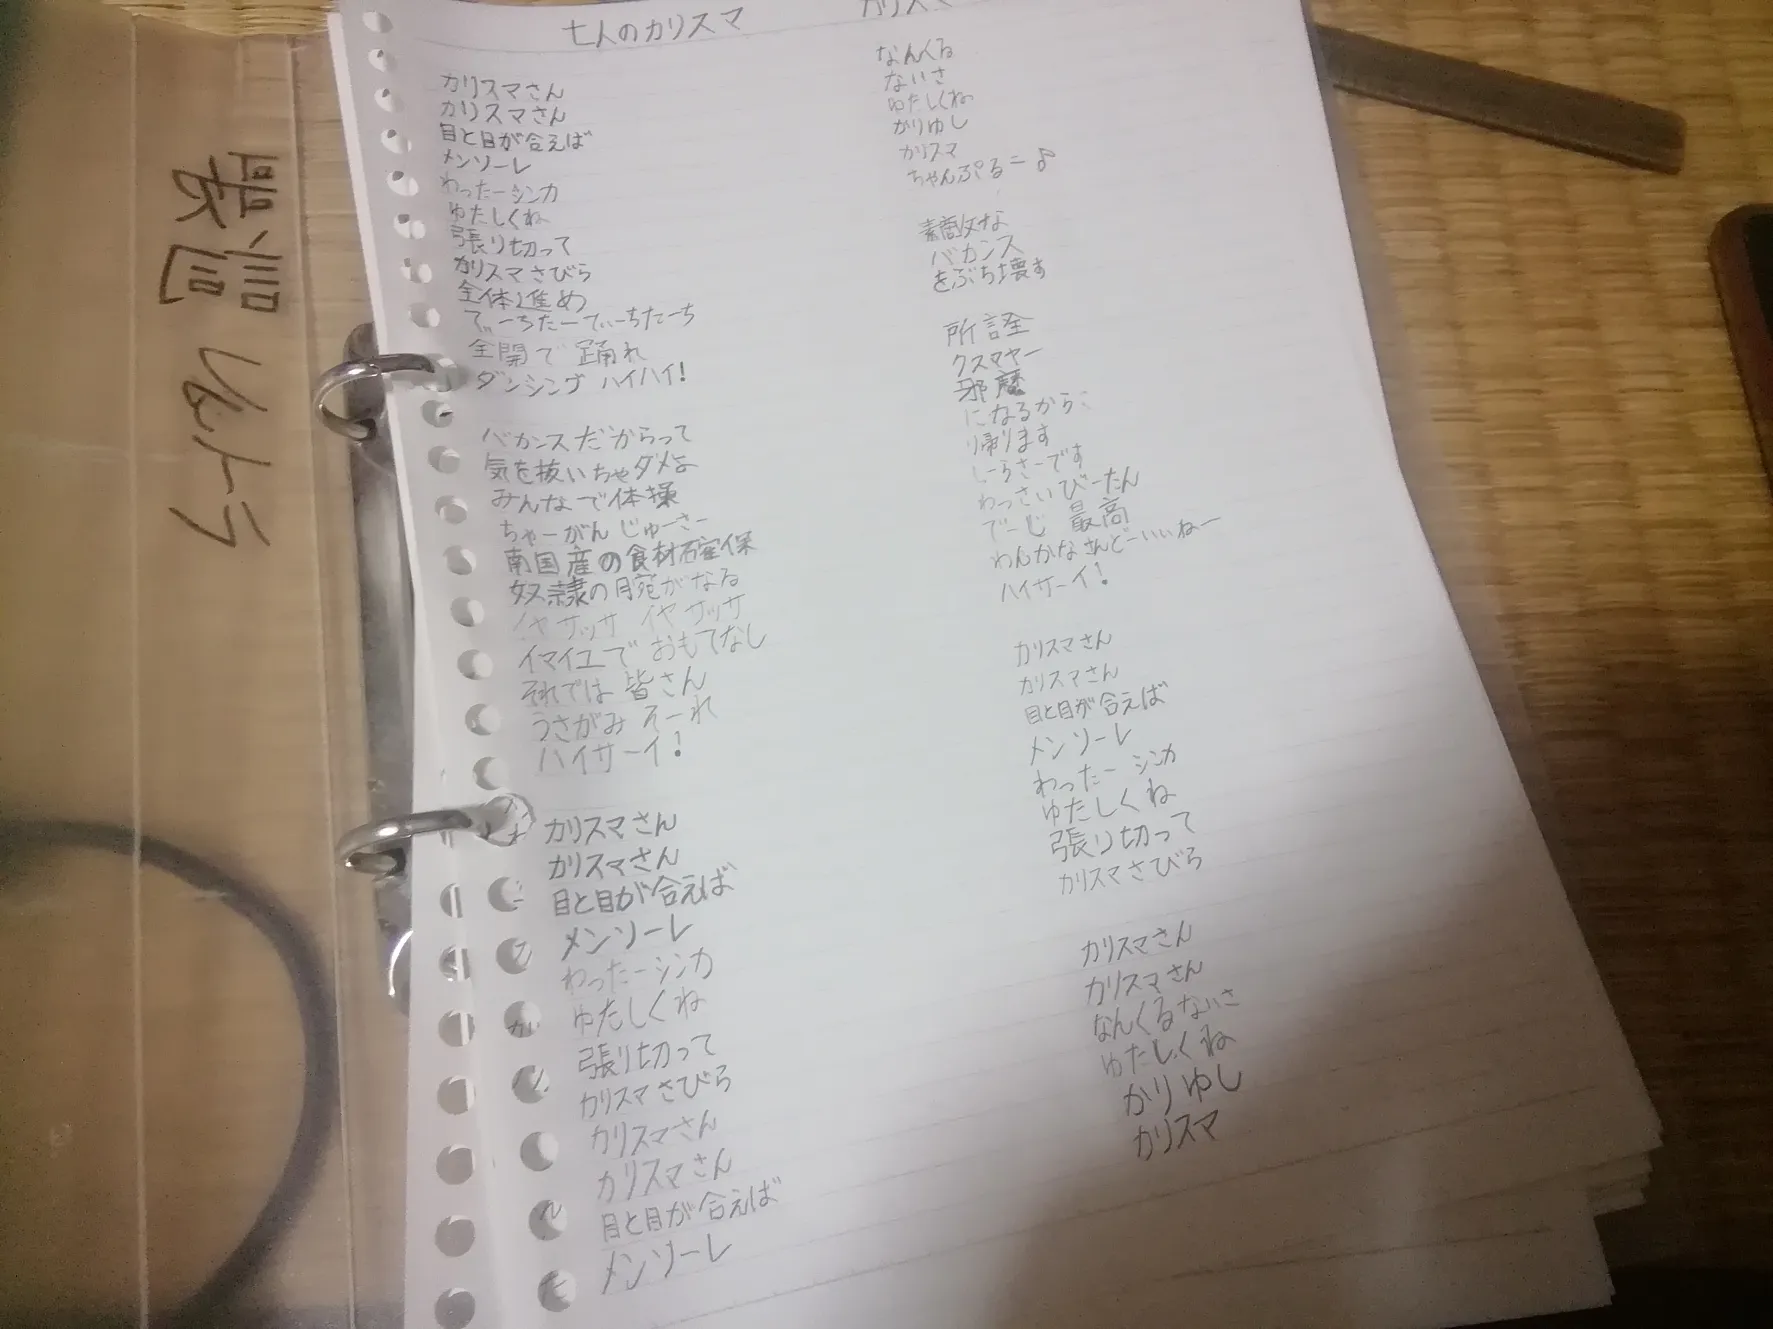 七人のカリスマ
カリスマさん
カリスマさん
目と目が合えば
メンソーレ
わったーシンカ
ゆたしくね
張り切って
カリスマさびら
全体進め
でぃーちたーでぃーちたーち
全開で踊れ
ダンシング ハイハイ!
バカンスだからって
気を抜いちゃダメよ
みんなで体操
ちゃーがんじゅーさー
南国産の食材確保
奴隷の腕がなる
イヤサッサ イヤサッサ
イマイユで おもてなし
それでは皆さん
うさがみそーれ
ハイサーイ!
カリスマさん
カリスマさん
目と目が合えば
メンソーレ
わったーシンカ
ゆたしくね
張り切って
カリスマさびら
カリスマさん
カリスマさん
目と目が合えば
メンソーレ
カリスマ
なんくる
ないさ
ゆたしくね
かりゆし
カリスマ
ちゃんぷるー♪
素敵な
バカンス
をぶち壊す
所詮
クスマヤー
邪魔
になるから
帰ります
しーらさーです
わっさいびーたん
でーじ 最高
わんかなさんどーいいねー
ハイサーイ!
カリスマさん
カリスマさん
目と目が合えば
メンソーレ
わったー シンカ
ゆたしくね
張り切って
カリスマさびら
カリスマさん
カリスマさん
なんくるないさ
ゆたしくね
かりゆし
カリスマ